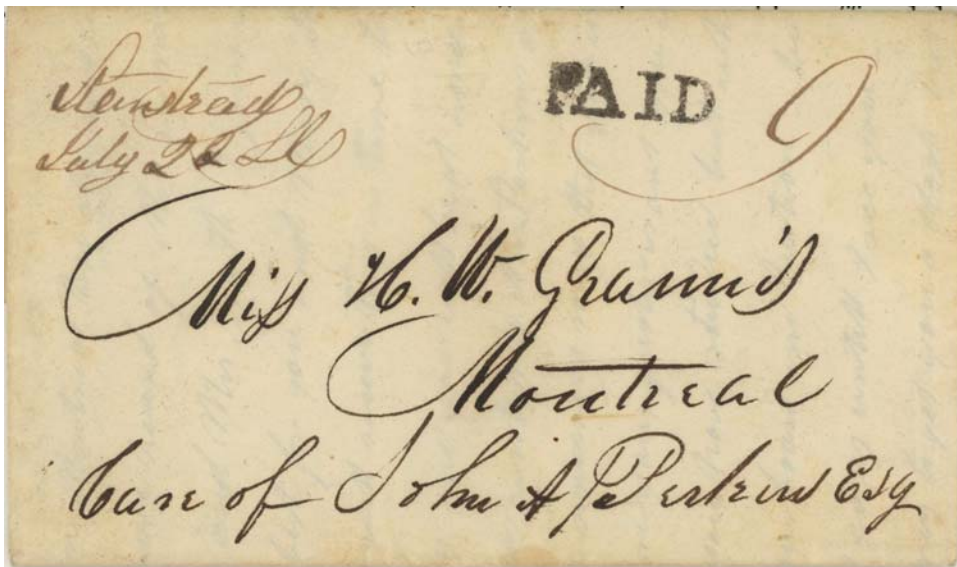 Stanstead
July 22
PAID 9
Miss H. W. Grannis
Montreal
Care of John A Perkins Esq